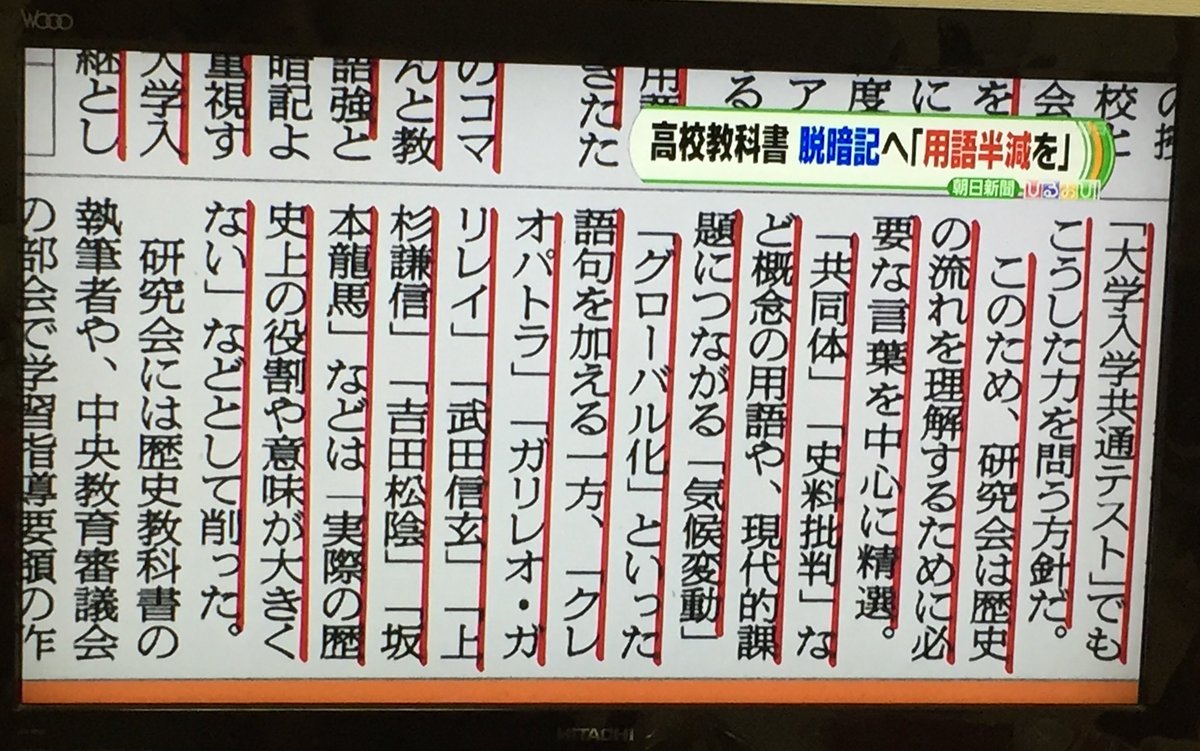 Wooo
高校教科書 脱暗記へ「用語半減を」
朝日新聞 ひるおび!
会
を
に
度
ア
る
きたた
のコマ
んと教
語強と
暗記よ
重視す
大学入
継とし
「大学入学共通テスト」でも
こうした力を問う方針だ。
このため、研究会は歴史
の流れを理解するために必
要な言葉を中心に精選。
「共同体」「史料批判」な
ど概念の用語や、現代的課
題につながる「気候変動」
「グローバル化」といった
語句を加える一方、「クレ
オパトラ」「ガリレオ・ガ
リレイ」「武田信玄」「上
杉謙信」「吉田松陰」「坂
本龍馬」などは「実際の歴
史上の役割や意味が大きく
ない」などとして削った。
研究会には歴史教科書の
執筆者や、中央教育審議会
の部会で学習指導要領の作
HITACHI